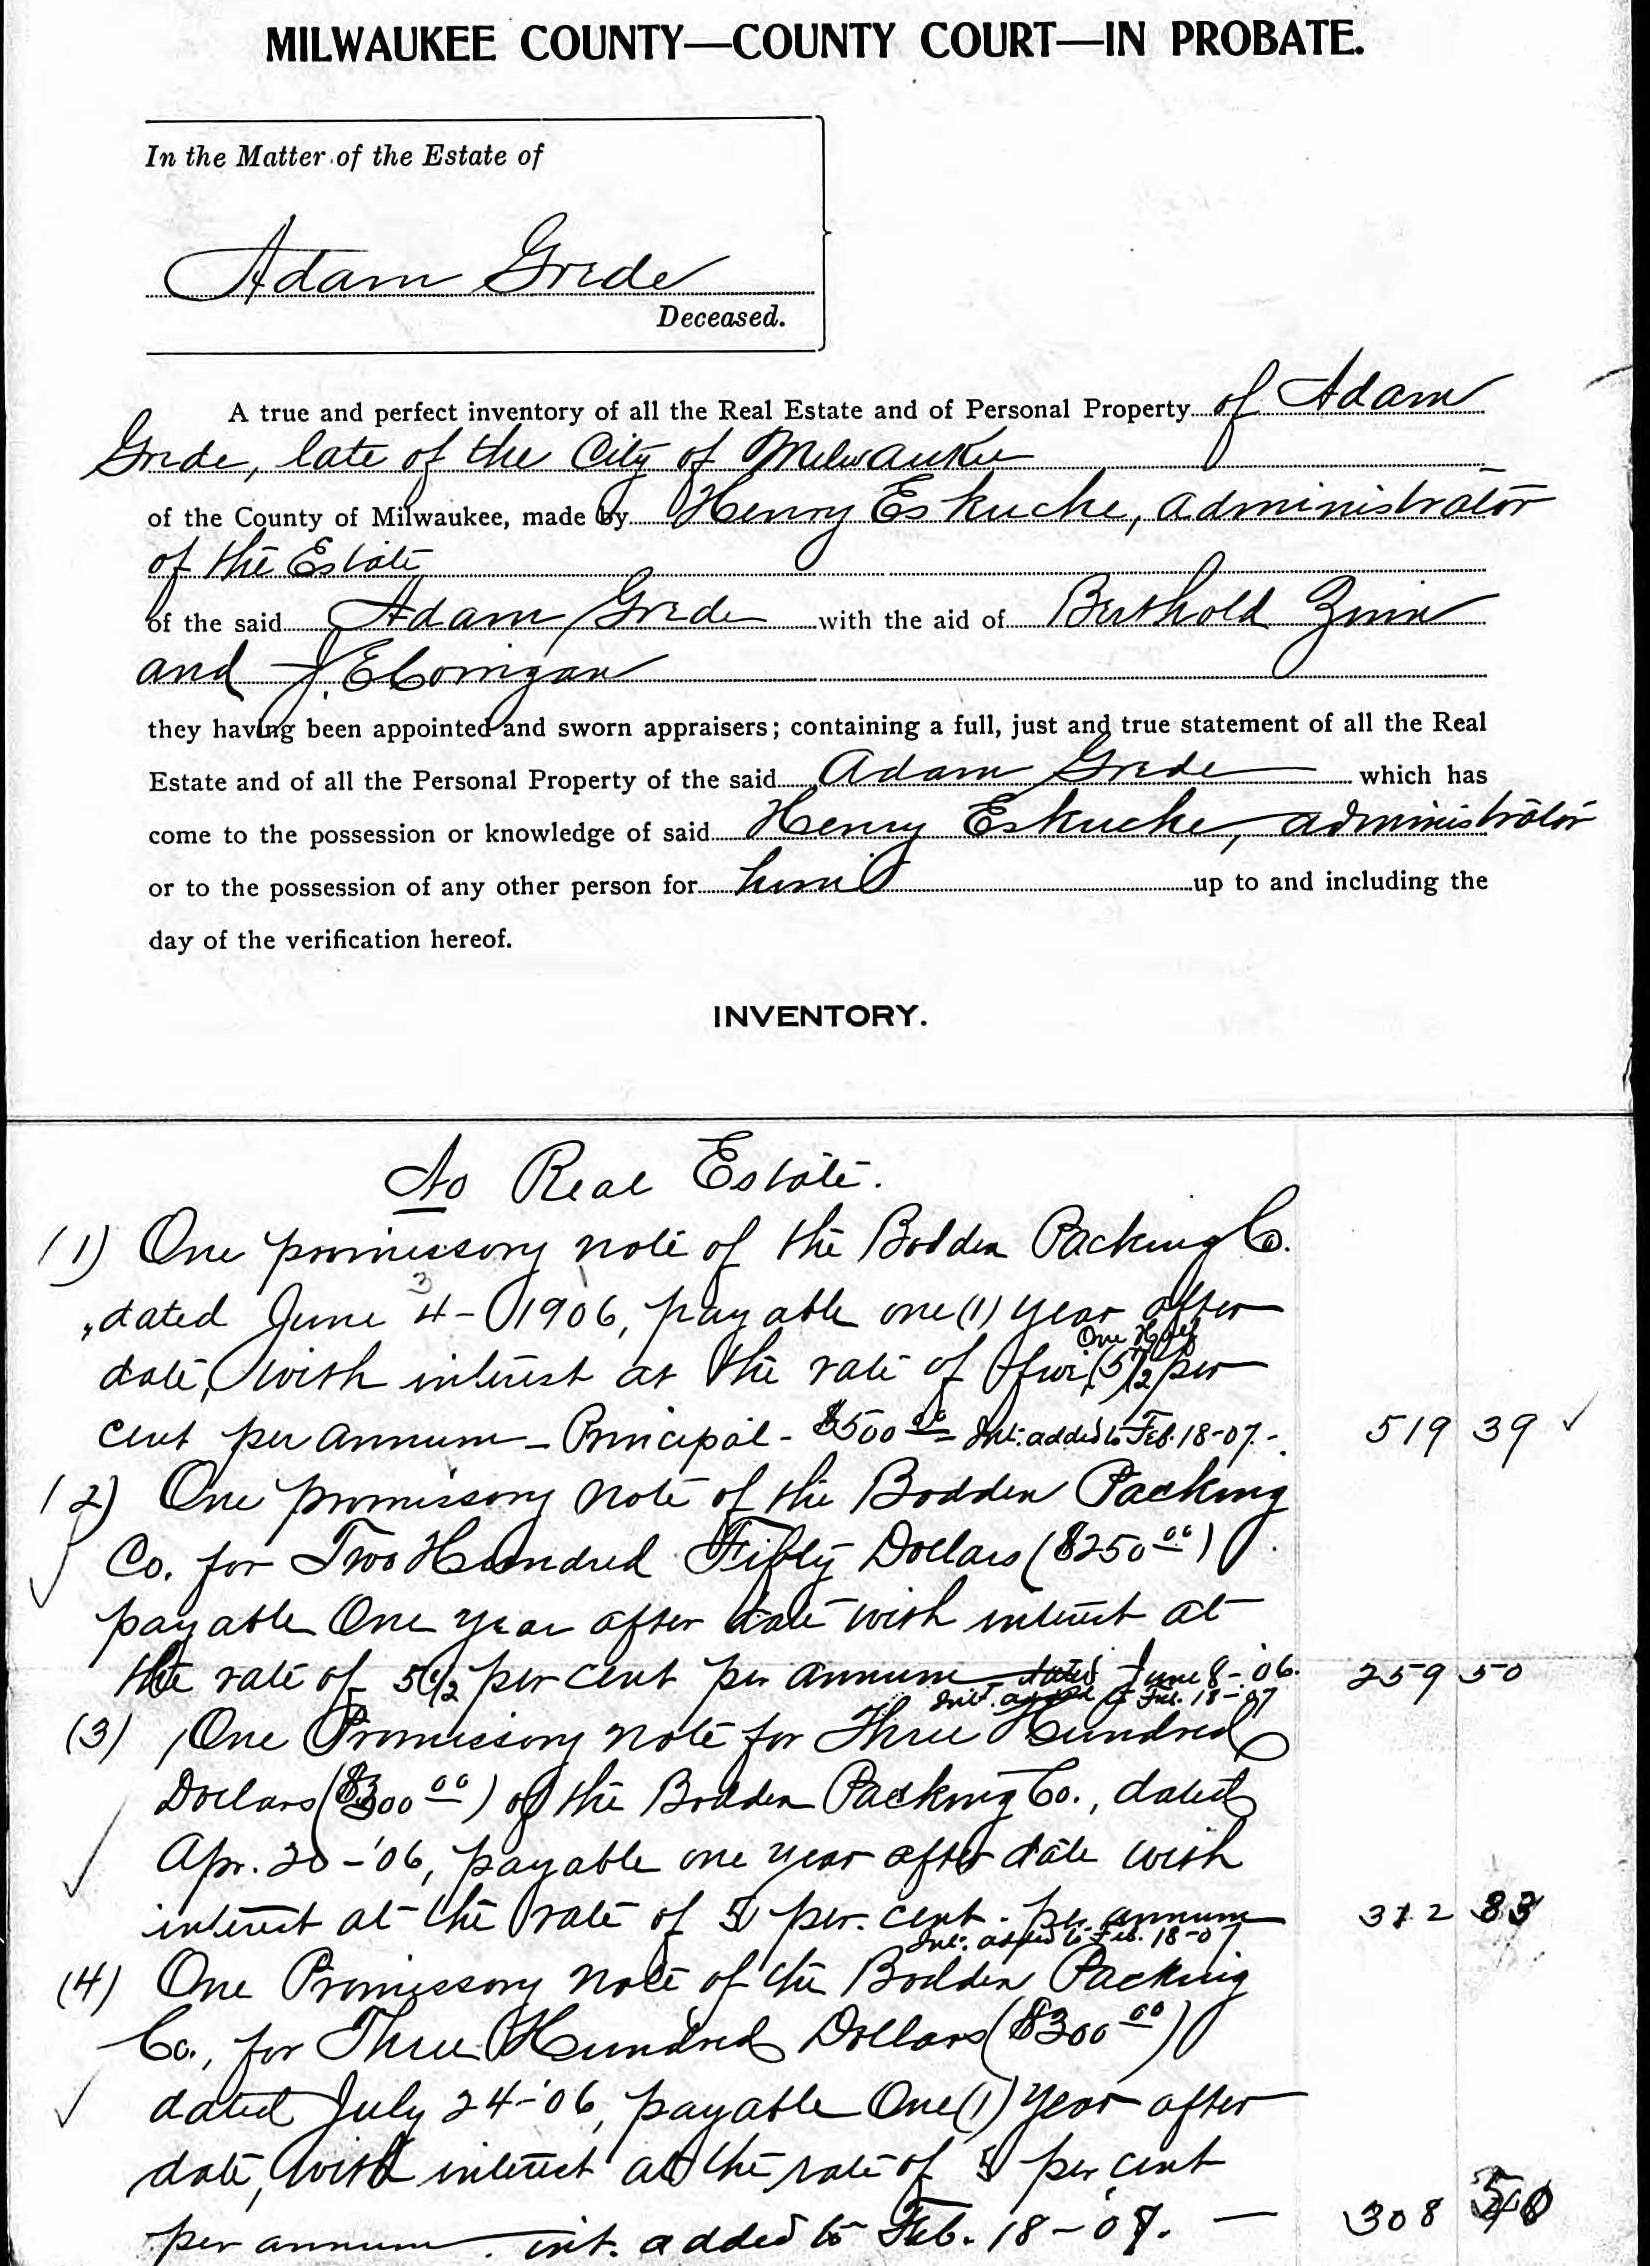 MILWAUKEE COUNTY—COUNTY COURT—IN PROBATE.
In the Matter of the Estate of
Adam Grede
Deceased.
A true and perfect inventory of all the Real Estate and of Personal Property of Adam
Grede, late of the City of Milwaukee
of the County of Milwaukee, made by Henry Eskuche, administrator
of the Estate
of the said Adam Grede with the aid of Berthold Zinn
and J. E Corrigan
they having been appointed and sworn appraisers; containing a full, just and true statement of all the Real
Estate and of all the Personal Property of the said Adam Grede which has
come to the possession or knowledge of said Henry Eskuche, administrator
or to the possession of any other person for him up to and including the
day of the verification hereof.
INVENTORY.
No Real Estate.
(1) One promissory note of the Bodden Packing Co.
3
dated June 4-1906, payable one (1) year after
One Half
date, with interest at the rate of five (5 1/2 per
cent per annum - Principal - $500 00 Int. added to Feb. 18-07. - 519 39 ✓
(2) One promissory note of the Bodden Packing
Co. for Two Hundred Fifty Dollars ($250 00)
payable One year after date with interest at
the rate of 5 1/2 per cent per annum dated June 8-'06. 259 50
Int. added to Feb. 18-07
(3) One Promissory note for Three Hundred
Dollars ($300 00) of the Bodden Packing Co., dated
Apr. 20-'06, payable one year after date with
interest at the rate of 5 per. cent. per annum 312 83
Int. added to Feb. 18-07
(4) One Promissory note of the Bodden Packing
Co., for Three Hundred Dollars ($300 00)
dated July 24-'06, payable One (1) year after
date, with interest at the rate of 5 per cent
per annum. int. added to Feb. 18-07. — 308